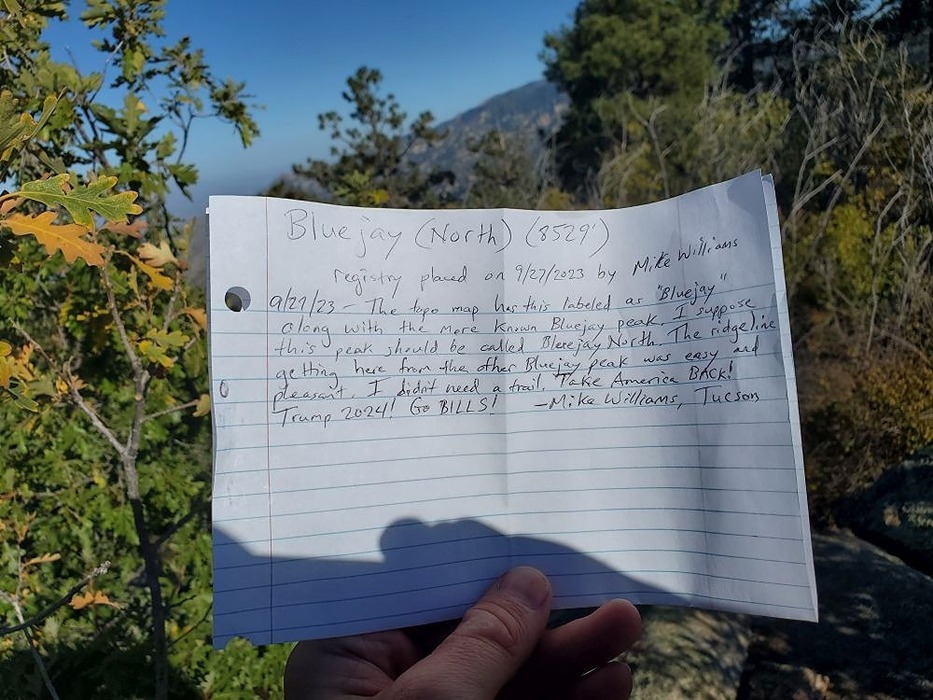 Bluejay (North) (8529')
registry placed on 9/27/2023 by Mike Williams
9/27/23 - The topo map has this labeled as "Bluejay"
along with the more known Bluejay peak. I suppose
this peak should be called Bluejay North. The ridgeline
getting here from the other Bluejay peak was easy and
pleasant. I didn't need a trail. Take America BACK!
Trump 2024! Go BILLS! -Mike Williams, Tucson